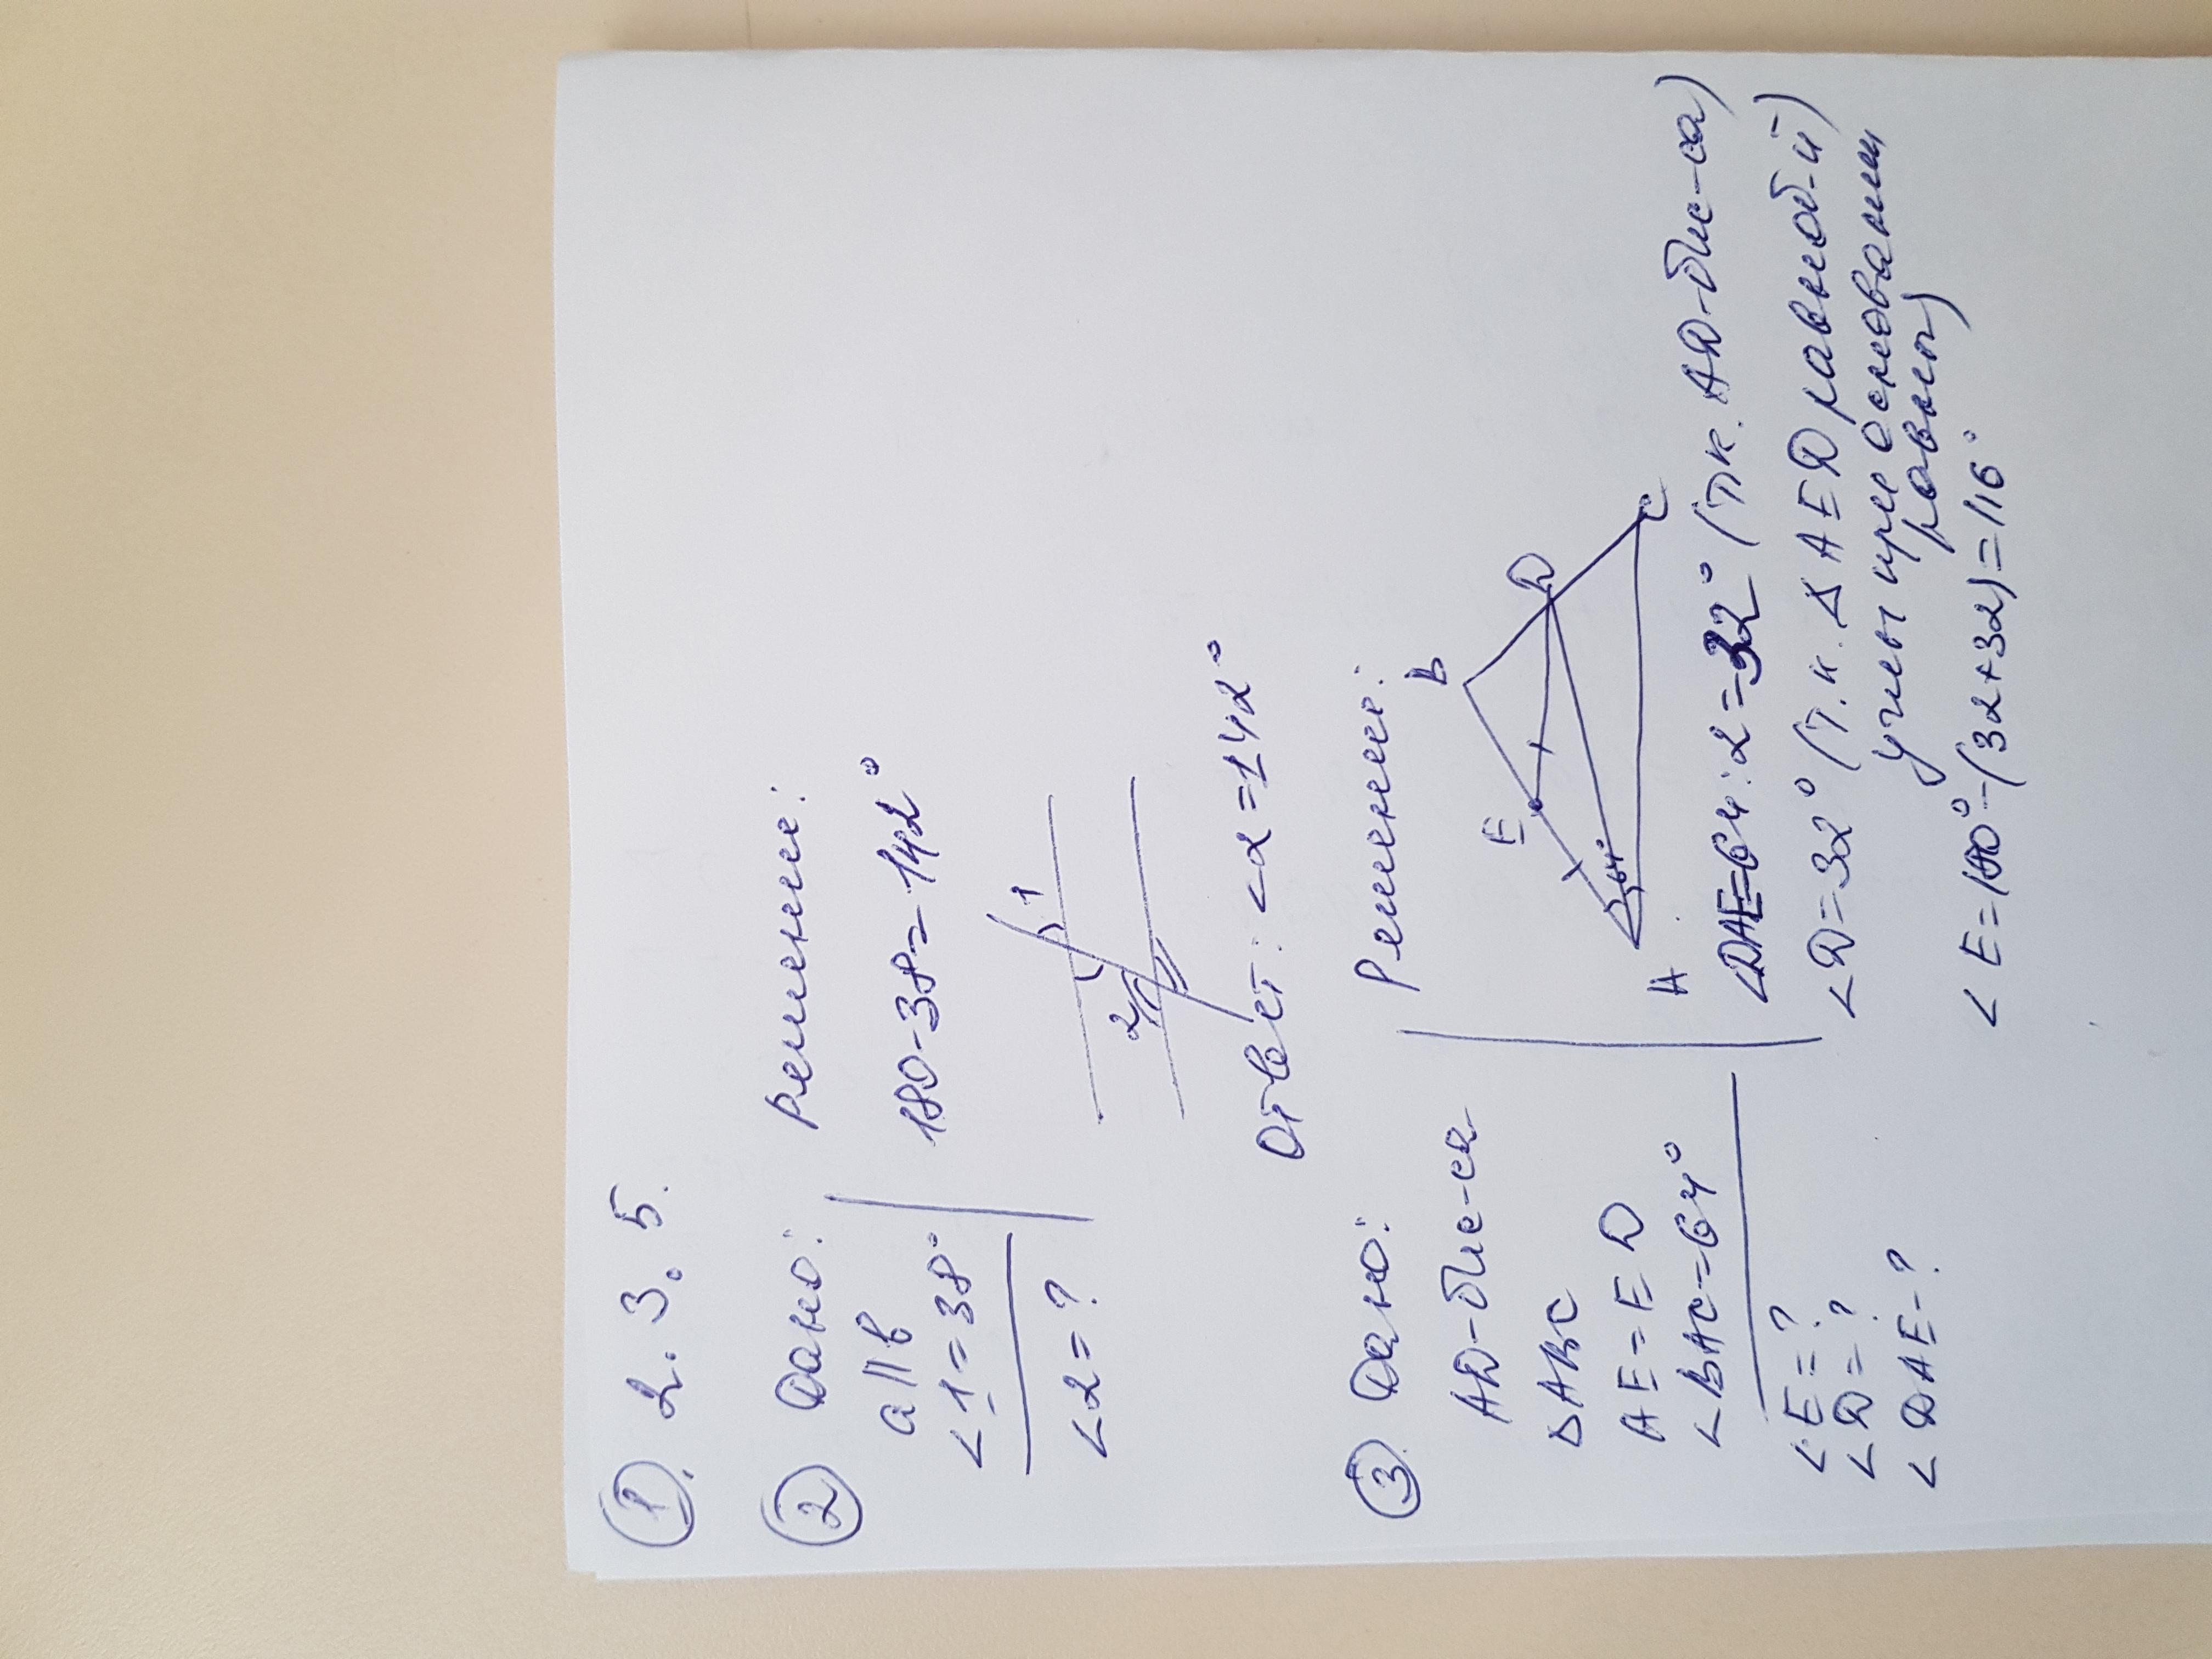 1. 2. 3. 5.
2 Дано: Решение:
a || b
∠1 = 38°
∠2 = ?
180 - 38 = 142°
1
2
Ответ: ∠2 = 142°
3 Дано: Решение:
AD - бис-са
△ABC
AE = ED
∠BAC = 64°
∠E = ?
∠D = ?
∠DAE - ?
B
E
D
64°
A
C
∠DAE = 64 : 2 = 32° (т.к. AD - бис-са)
∠D = 32° (т.к. △ AED равноб-й)
углы при основании
равны)
∠E = 180° - (32 + 32) = 116°